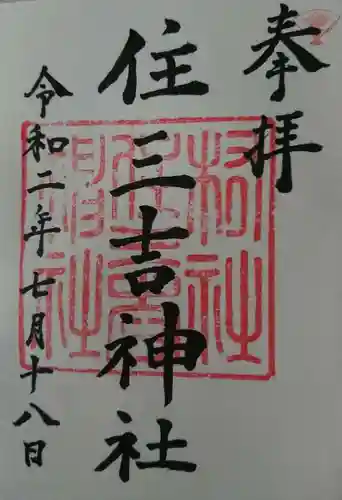 奉拝
住三吉神社
令和二年七月十八日